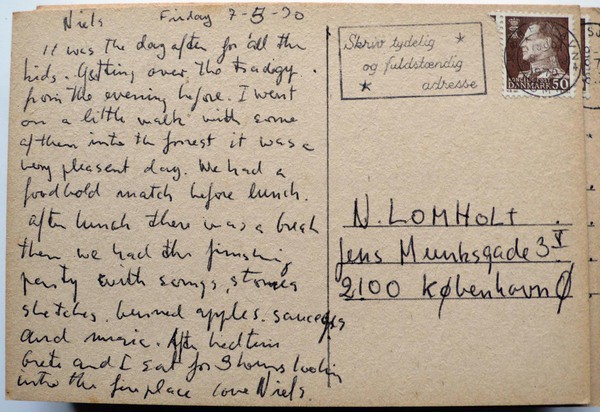 Niels Friday 7-8-70
it was the day after for all the
kids. Getting over the tradigy
from the evening before. I went
on a little walk with some
of them into the forrest it was a
very pleasent day. We had a
foodbold match before lunch.
after lunch there was a break
then we had the finishing
party with songs, stories
sketches, burned apples, saucages
and music. After bedtime
Grete and I sat for 3 hours looking
into the fireplace love Niels.
Skriv tydelig
og fuldstændig
adresse
DANMARK 50
N. LOMHOLT
Jens Munksgade 3 V
2100 København Ø